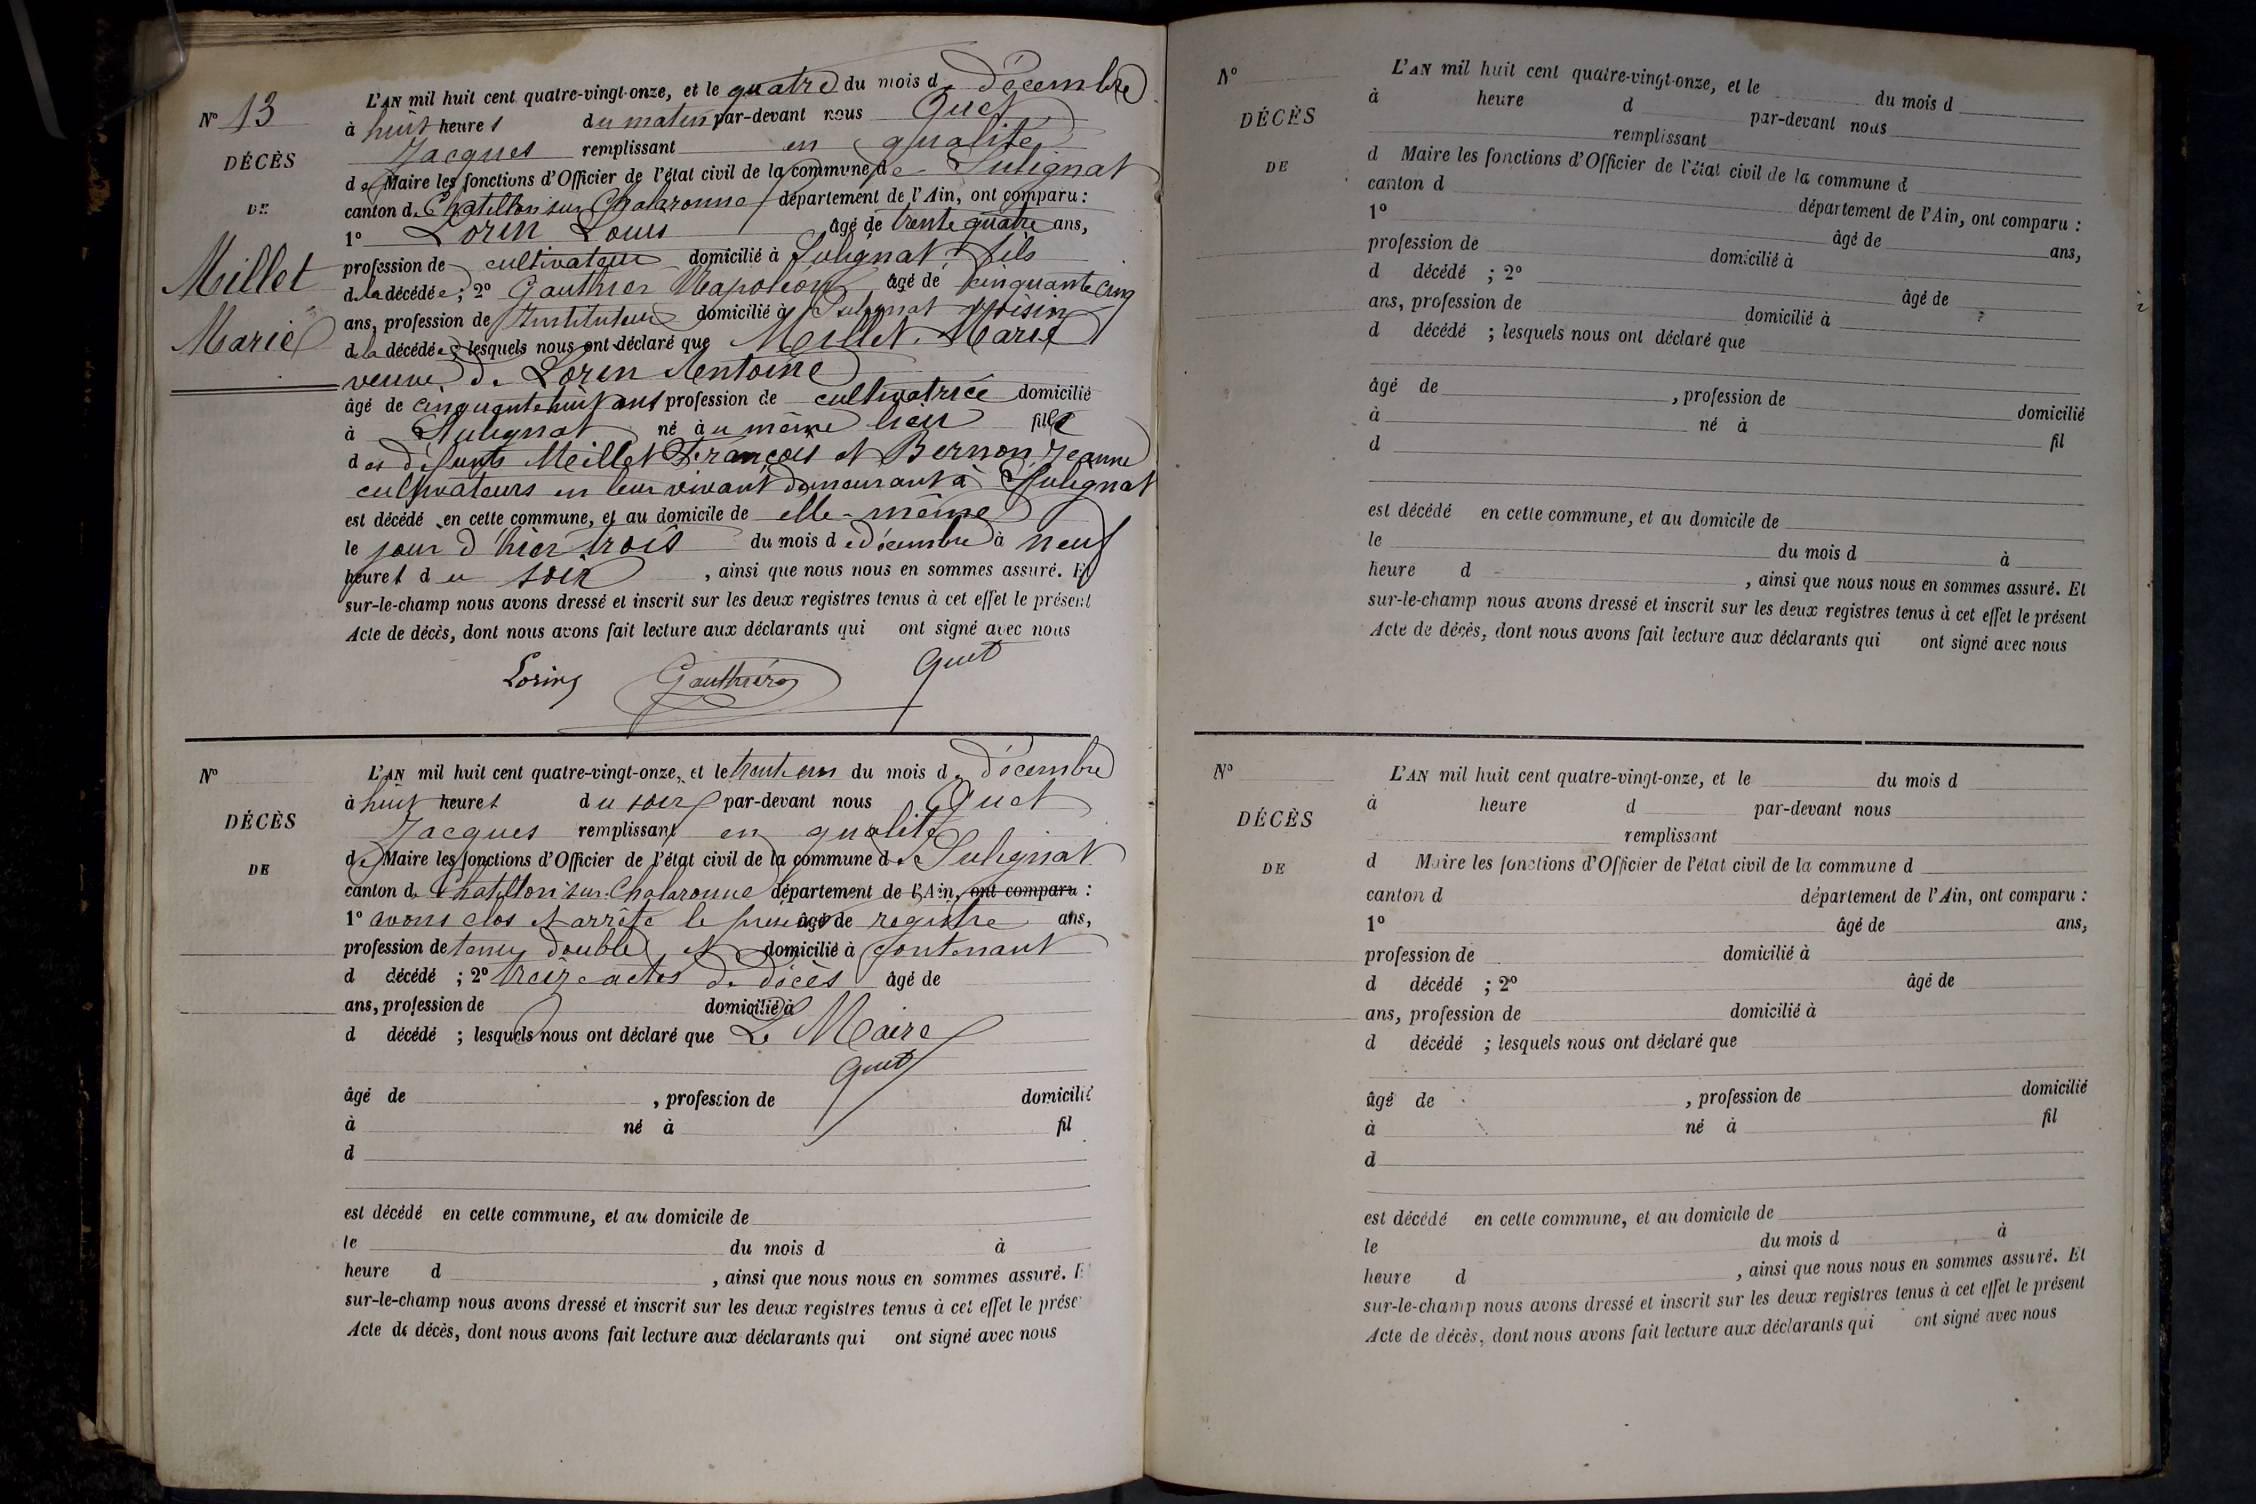 L'AN mil huit cent quatre-vingt-onze, et le quatre du mois de Décembre
N° 13
à huit heures du matin par-devant nous Quet
Jacques remplissant en qualité
DÉCÈS
de Maire les fonctions d'Officier de l'état civil de la commune de Sulignat
DE
canton de Chatillon sur Chalaronne département de l'Ain, ont comparu :
1° Lorin Louis âgé de trente quatre ans,
Millet
profession de cultivateur domicilié à Sulignat fils
de la décédée ; 2° Gauthier Napoléon âgé de cinquante cinq
ans, profession de Instituteur domicilié à Sulignat voisin
Marie
de la décédée ; lesquels nous ont déclaré que Millet Marie
veuve de Lorin Antoine
âgé de cinquante huit ans profession de cultivatrice domicilié
à Sulignat né à u même lieu fille
des défunts Millet François et Bernon Jeanne
cultivateurs en leur vivant demeurant à Sulignat
est décédé en cette commune, et au domicile de elle-même
le jour d'hier trois du mois de décembre à neuf
heures du soir , ainsi que nous nous en sommes assuré. Et
sur-le-champ nous avons dressé et inscrit sur les deux registres tenus à cet effet le présent
Acte de décès, dont nous avons fait lecture aux déclarants qui ont signé avec nous
Lorin Gauthier Quet
N°
L'AN mil huit cent quatre-vingt-onze, et le trente un du mois de Décembre
à huit heures du soir par-devant nous Quet
DÉCÈS
Jacques remplissant en qualité
de Maire les fonctions d'Officier de l'état civil de la commune de Sulignat
DE
canton de Chatillon sur Chalaronne département de l'Ain, ont comparu :
1° avons clos et arrêté le présent âgé de registre ans,
profession de tenu double et domicilié à contenant
d décédé ; 2° treize actes de décès âgé de
ans, profession de domicilié à
d décédé ; lesquels nous ont déclaré que Le Maire
Quet
âgé de , profession de domicilié
à né à fil
d
est décédé en cette commune, et au domicile de
le du mois d à
heure d , ainsi que nous nous en sommes assuré. E
sur-le-champ nous avons dressé et inscrit sur les deux registres tenus à cet effet le prése
Acte de décès, dont nous avons fait lecture aux déclarants qui ont signé avec nous
N°
L'AN mil huit cent quatre-vingt-onze, et le du mois d
à heure d par-devant nous
DÉCÈS
remplissant
d Maire les fonctions d'Officier de l'état civil de la commune d
DE
canton d département de l'Ain, ont comparu :
1° âgé de ans,
profession de domicilié à
d décédé ; 2° âgé de
ans, profession de domicilié à
d décédé ; lesquels nous ont déclaré que
âgé de , profession de domicilié
à né à fil
d
est décédé en cette commune, et au domicile de
le du mois d à
heure d , ainsi que nous nous en sommes assuré. Et
sur-le-champ nous avons dressé et inscrit sur les deux registres tenus à cet effet le présent
Acte de décès, dont nous avons fait lecture aux déclarants qui ont signé avec nous
N°
L'AN mil huit cent quatre-vingt-onze, et le du mois d
à heure d par-devant nous
DÉCÈS
remplissant
d Maire les fonctions d'Officier de l'état civil de la commune d
DE
canton d département de l'Ain, ont comparu :
1° âgé de ans,
profession de domicilié à
d décédé ; 2° âgé de
ans, profession de domicilié à
d décédé ; lesquels nous ont déclaré que
âgé de , profession de domicilié
à né à fil
d
est décédé en cette commune, et au domicile de
le du mois d à
heure d , ainsi que nous nous en sommes assuré. Et
sur-le-champ nous avons dressé et inscrit sur les deux registres tenus à cet effet le présent
Acte de décès, dont nous avons fait lecture aux déclarants qui ont signé avec nous